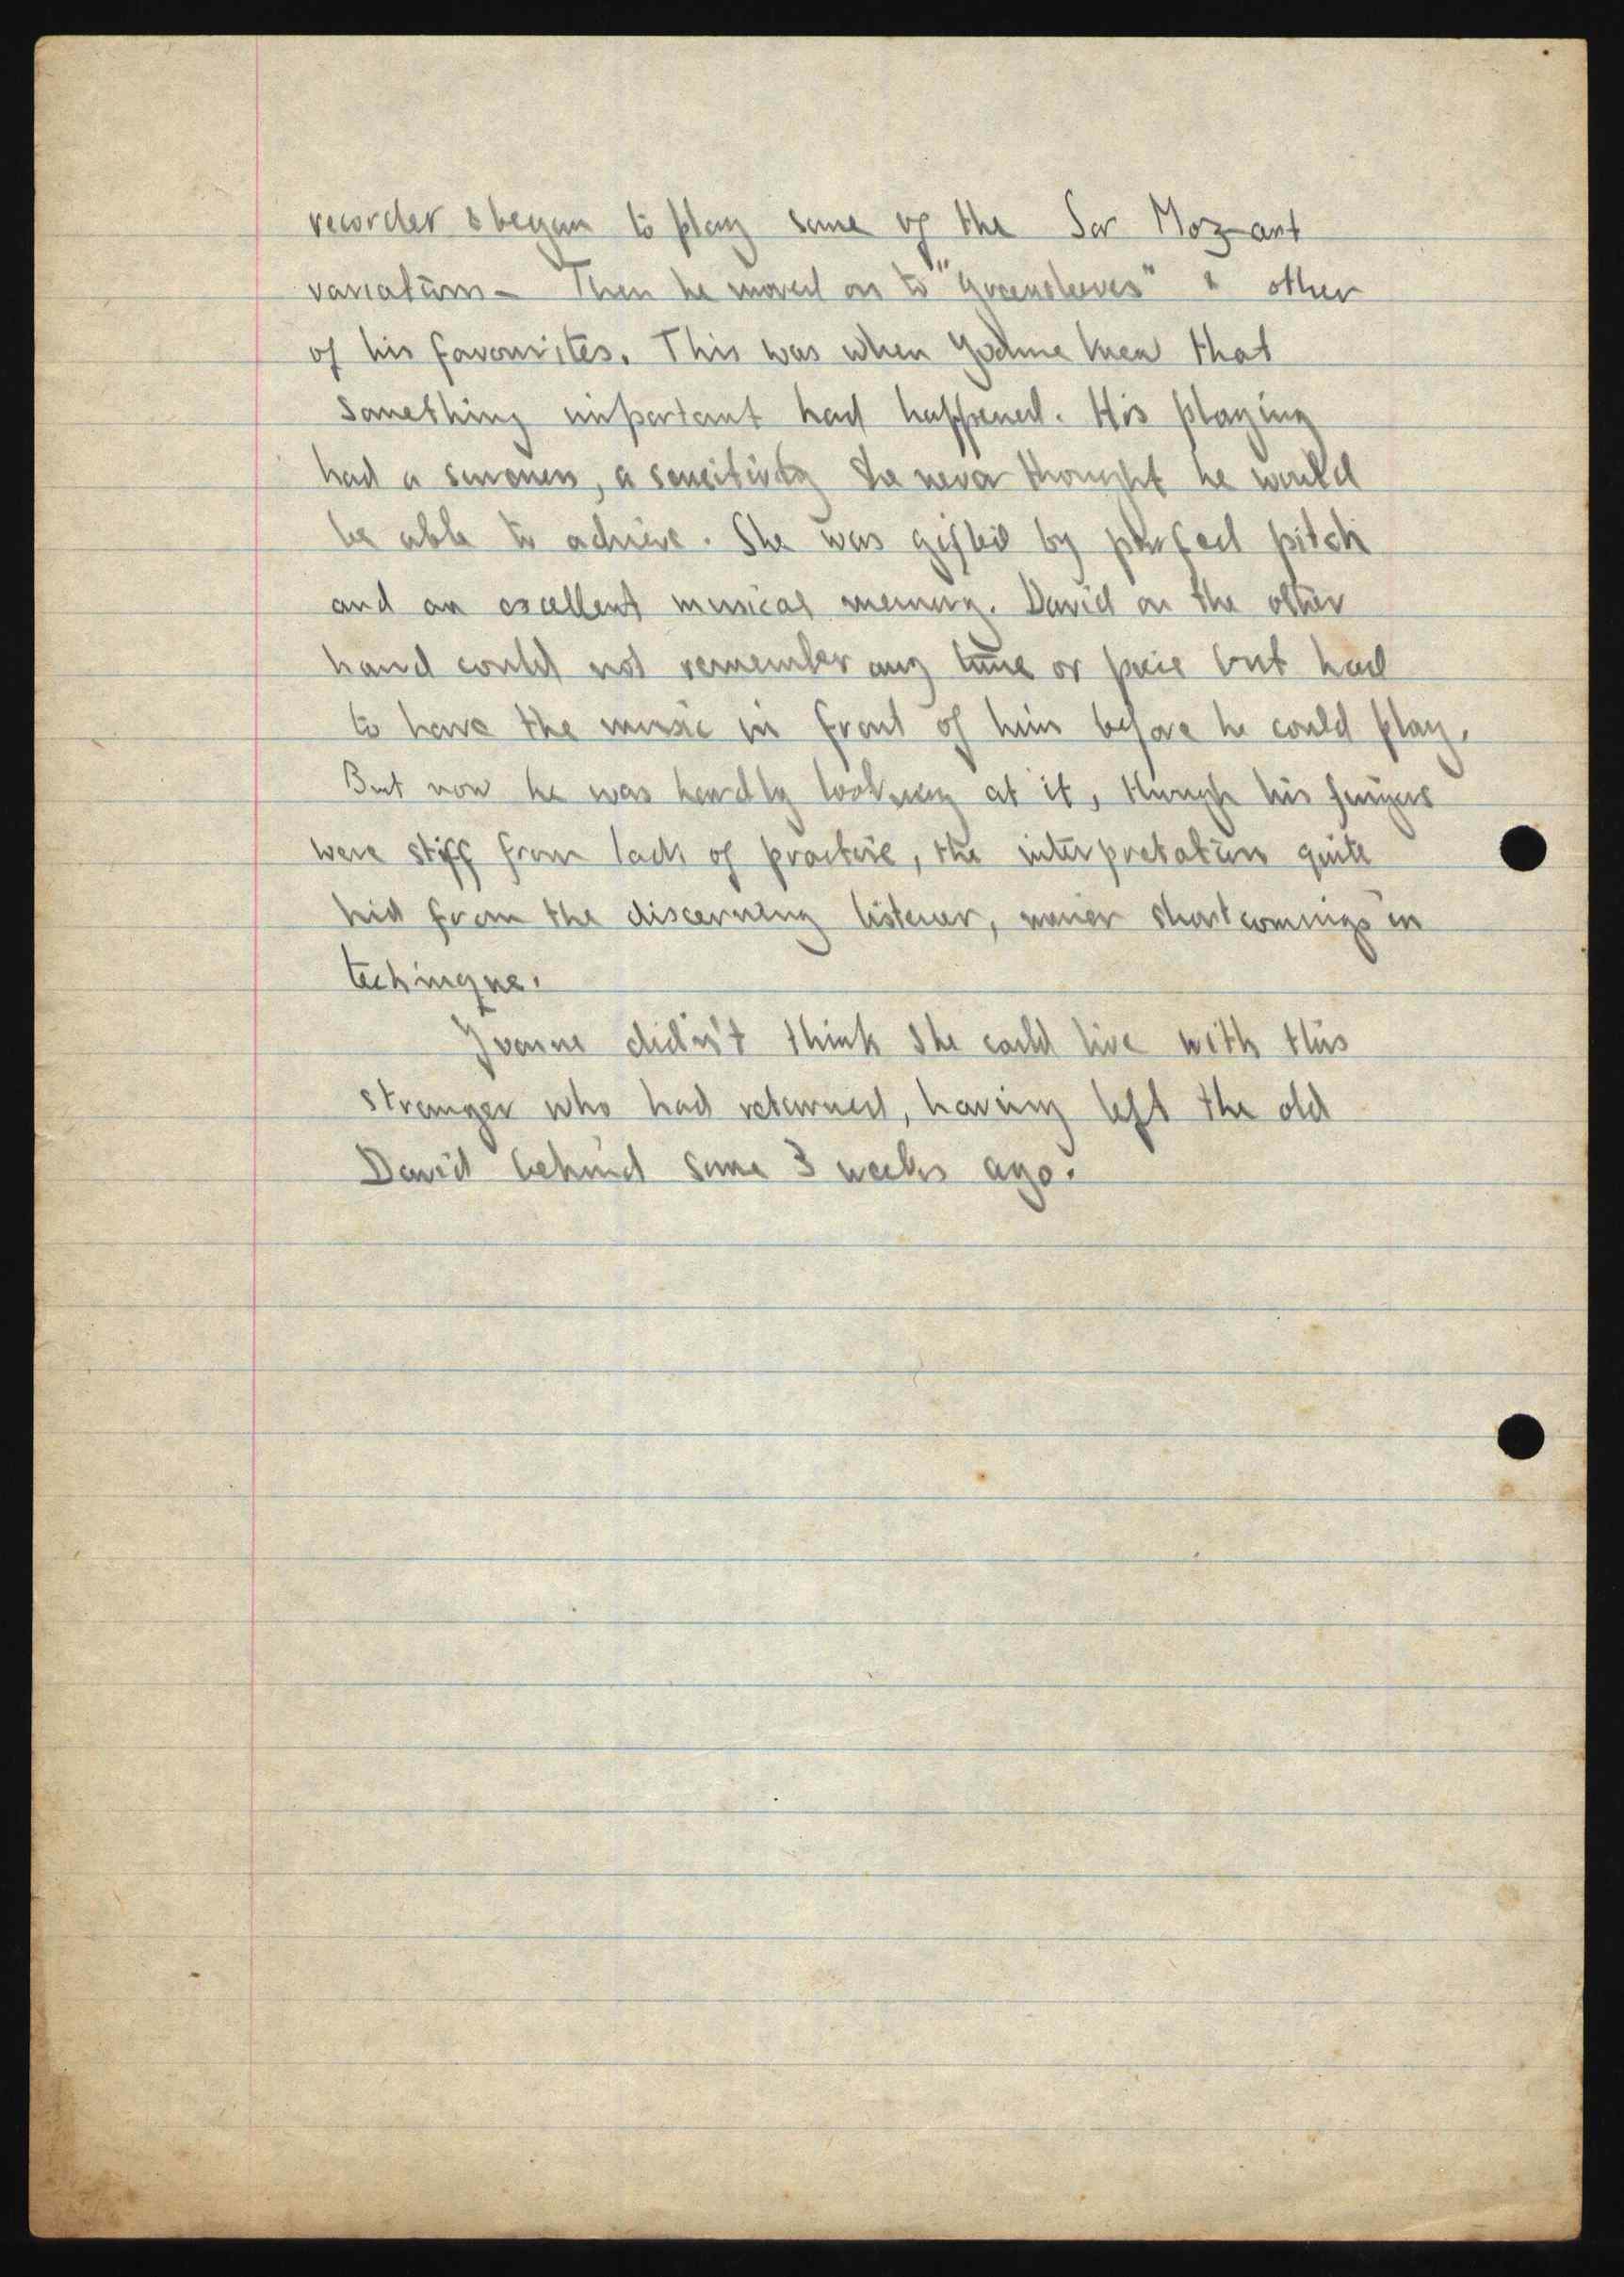 recorder & began to play some of the Sor Mozart
variations - Then he moved on to "Greensleeves" & other
of his favourites. This was when Yvonne knew that
something important had happened. His playing
had a sureness, a sensitivity she never thought he would
be able to achieve. She was gifted by perfect pitch
and an excellent musical memory. David on the other
hand could not remember any tune or piece but had
to have the music in front of him before he could play.
But now he was hardly looking at it, though his fingers
were stiff from lack of practise, the interpretation quite
hid from the discerning listener, minor shortcomings in
technique.
Yvonne didn't think she could live with this
stranger who had returned, having left the old
David behind some 3 weeks ago.